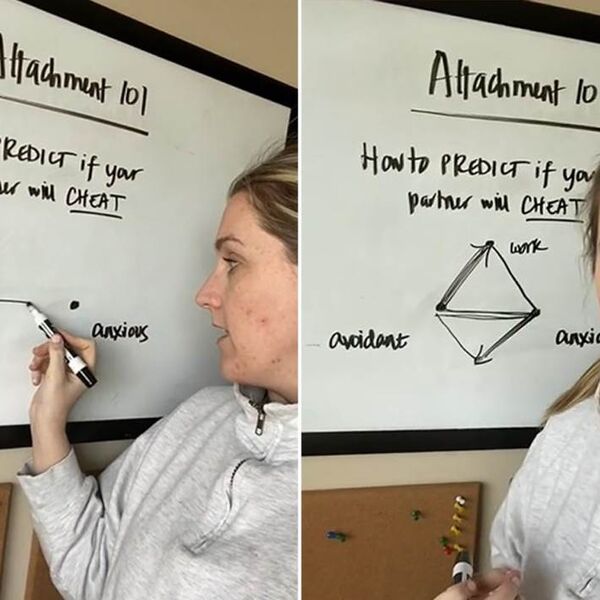 Attachment 101
PREDICT if your
will CHEAT
anxious
Attachment 10
How to PREDICT if you
partner will CHEAT
work
avoidant
anxio